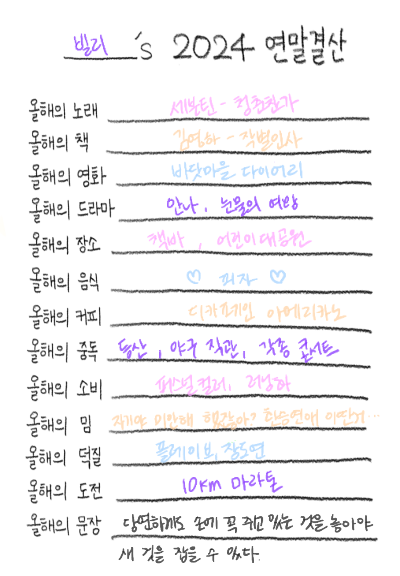 빌리's 2024 연말결산
올해의 노래 세븐틴 - 청춘찬가
올해의 책 김영하 - 작별인사
올해의 영화 바닷마을 다이어리
올해의 드라마 안나, 눈물의 여왕
올해의 장소 책바, 어린이대공원
올해의 음식 ♡ 피자 ♡
올해의 커피 디카페인 아메리카노
올해의 중독 등산, 야구 직관, 각종 콘서트
올해의 소비 퍼스널컬러, 러닝화
올해의 밈 자기야 미안해 했잖아? 환승연애 이딴거...
올해의 덕질 플레이브, 장도연
올해의 도전 10km 마라톤
올해의 문장 당연하게도 손에 꼭 쥐고 있는 것을 놓아야
새 것을 잡을 수 있다.